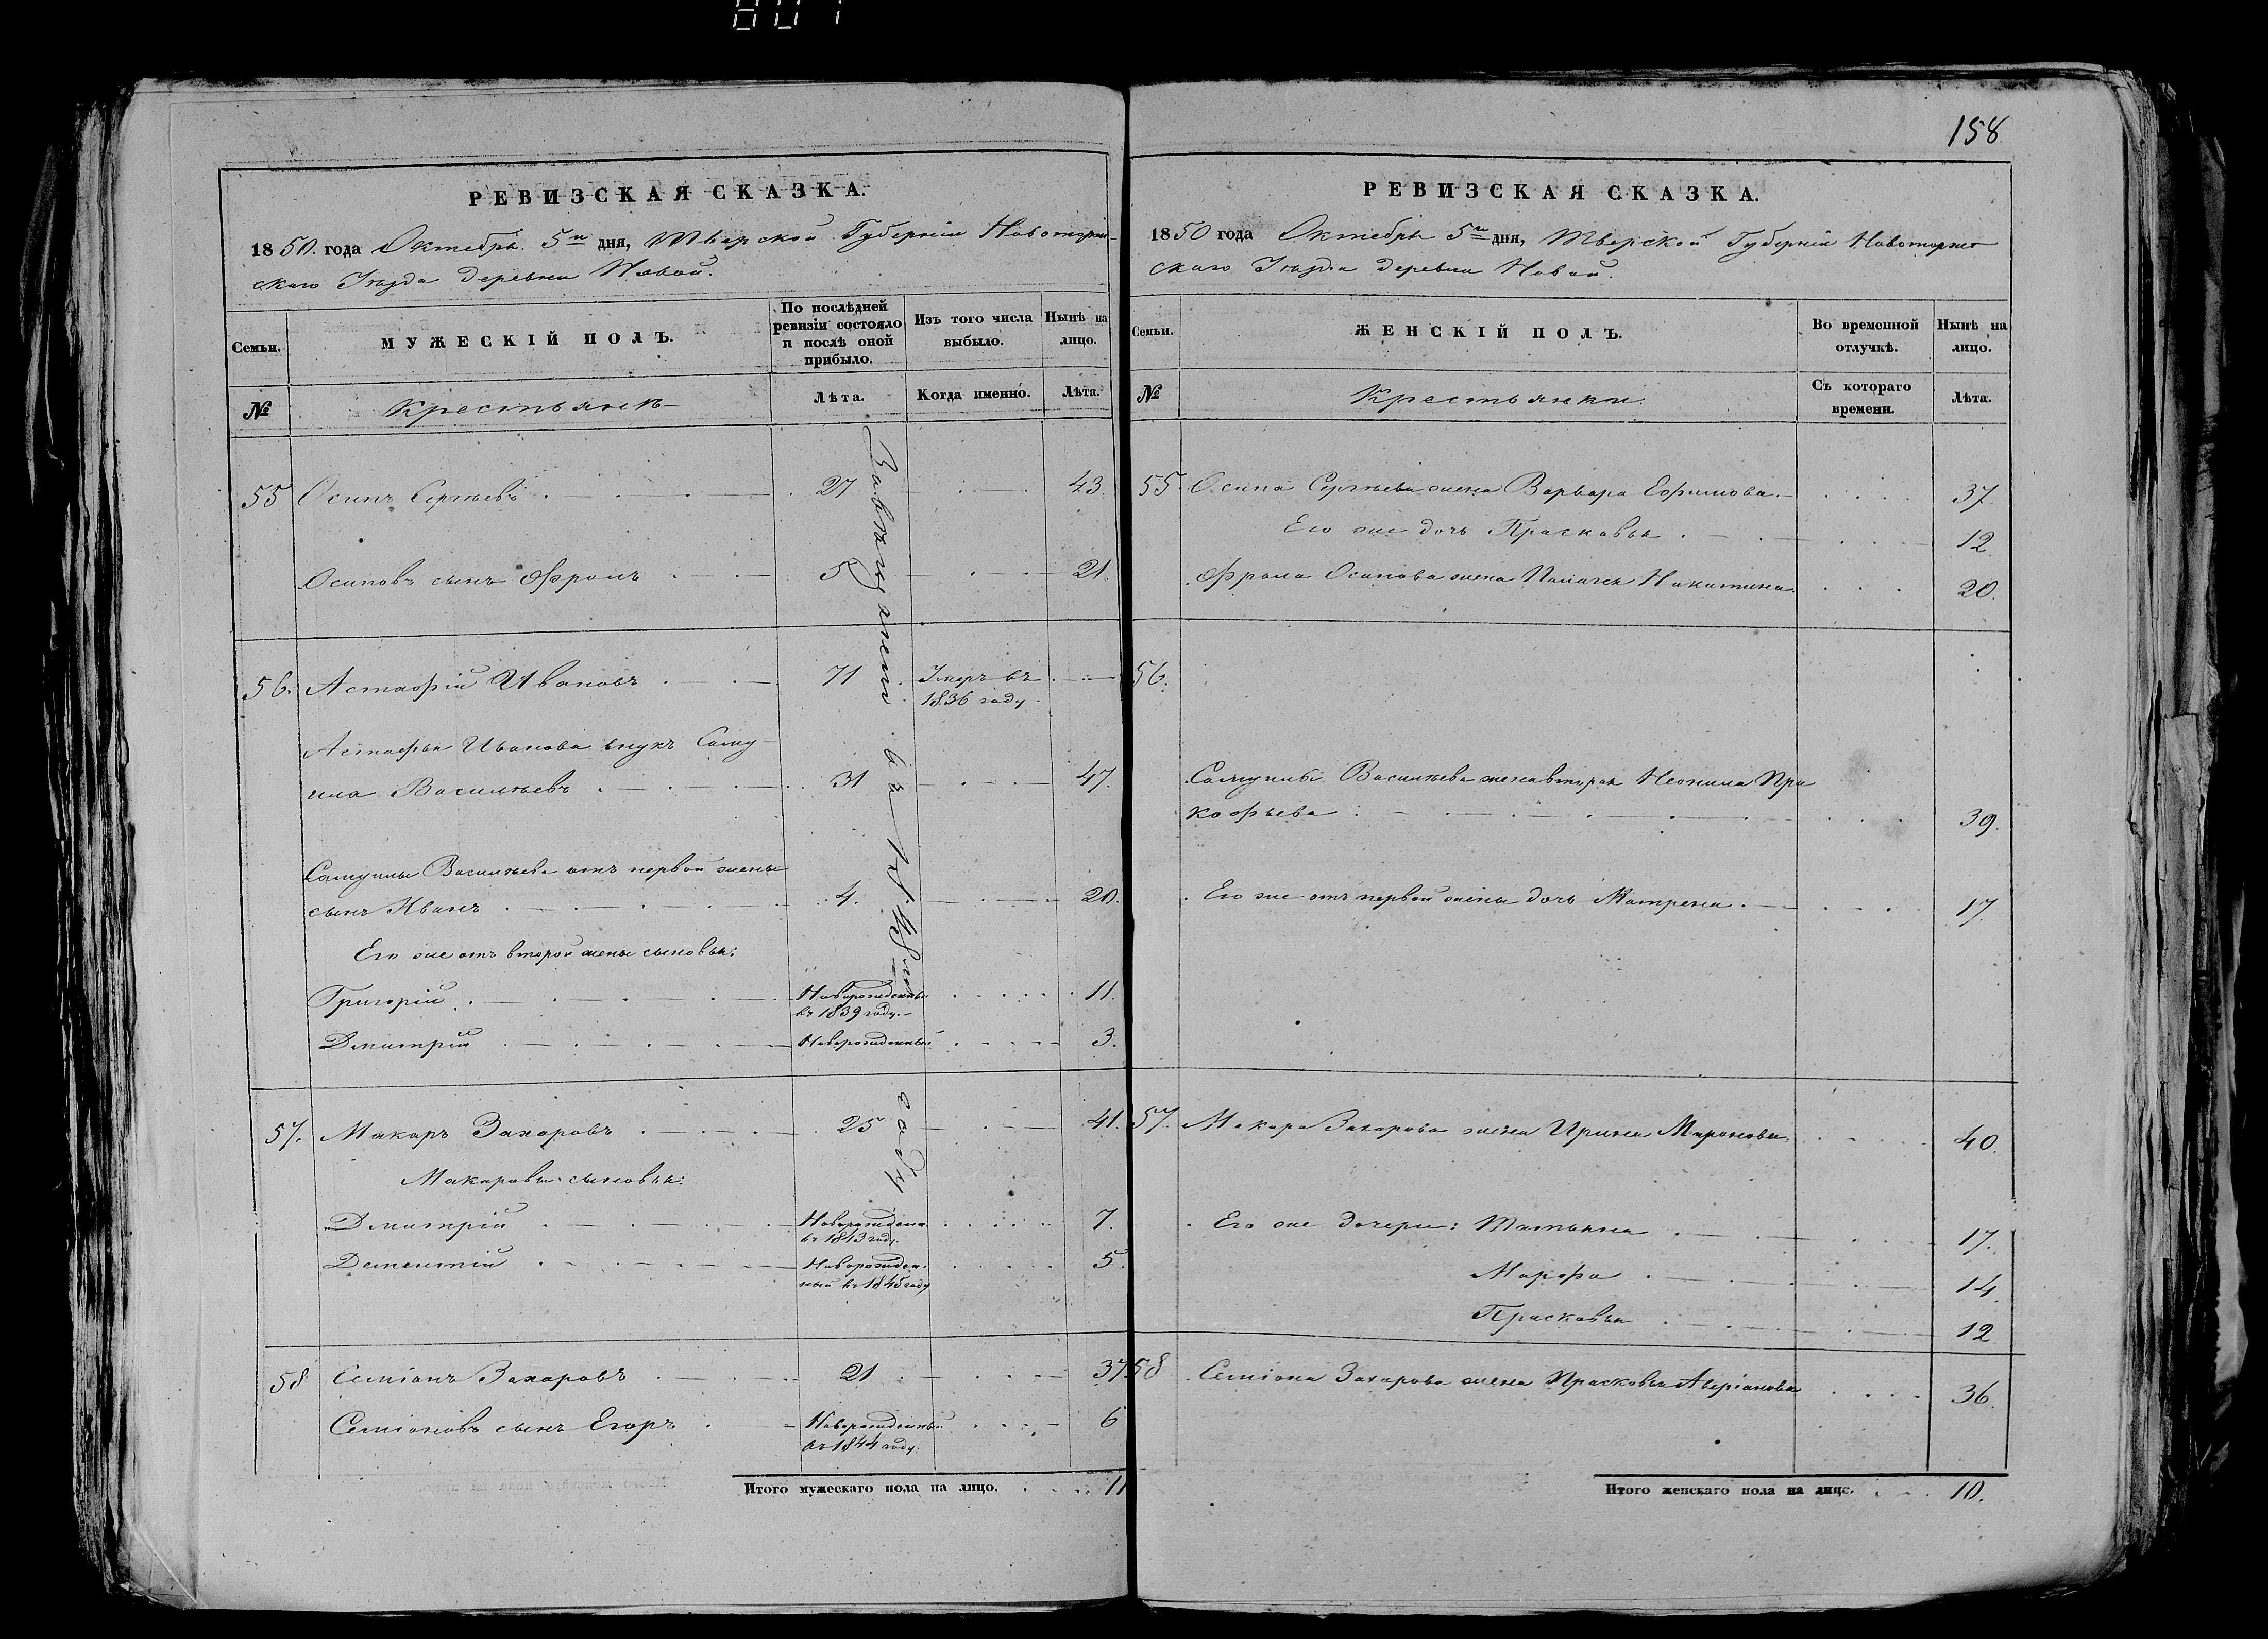 807
РЕВИЗСКАЯ СКАЗКА.
1850. года Октября 5го дня, Тверской Губерніи Новоторж-
скаго Уезда деревни Новой.
Семьи.
МУЖЕСКІЙ ПОЛЪ.
По послѣдней ревизіи состояло и послѣ оной прибыло.
Изъ того числа выбыло.
Нынѣ на лицо.
№
Крестьянъ
Лѣта.
Когда именно.
Лѣта.
55 Осипъ Сергѣевъ 27 43.
Осиповъ сынъ Фролъ 5 21.
56. Астафій Ивановъ 71 Умеръ въ
1836 году.
Астафья Иванова внукъ Саму-
ила Васильевъ 31 47.
Самуилы Васильева отъ первой жены
сынъ Иванъ 4. 20.
Его же отъ второй жены сыновья:
Григорій Новорожденный 11.
въ 1839 году.
Дмитрій Новорожденный 3.
57. Макаръ Захаровъ 25 41.
Макаровы сыновья:
Дмитрій Новорожден. 7.
въ 1843 году.
Дементій Новорожден- 5
ный въ 1845 году
58 Семіонъ Захаровъ 21 37
Семіоновъ сынъ Егоръ Новорожденный 6
въ 1844 году.
въ году
Итого мужескаго пола на лицо. 11
158
РЕВИЗСКАЯ СКАЗКА.
1850 года Октября 5го дня, Тверской Губерніи Новоторж-
скаго Уезда деревни Новой.
Семьи.
ЖЕНСКІЙ ПОЛЪ.
Во временной отлучкѣ.
Нынѣ на лицо.
№
Крестьянки.
Съ котораго времени.
Лѣта.
55. Осипа Сергѣева жена Варвара Ефимова. 37
Его же дочь Прасковья 12.
Фрола Осипова жена Никитина. 20.
56.
Самуилы Васильева жена вторая Неонила Про
кофьева 39.
Его же отъ первой жены дочь Матрена. 17.
57. Макара Захарова жена Ирина Миронова. 40.
Его же дочери: Татьяна 17.
Марфа 14
Прасковья 12
58 Семіона Захарова жена Прасковья Аверіанова 36.
Итого женскаго пола на лице. 10.